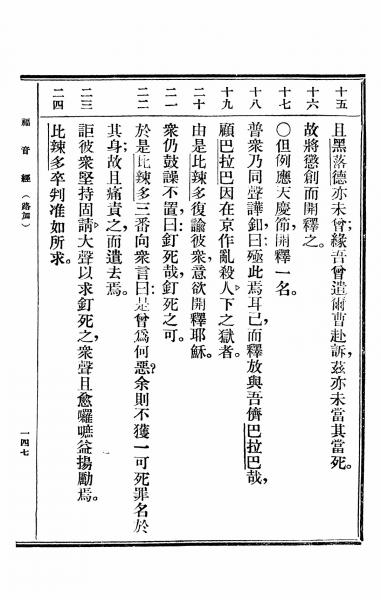 十五 且黑落德亦未曾；緣吾曾遣爾曹赴訴，茲亦未當其當死。
十六 故將懲創而開釋之。
十七 〇但例應天慶節開釋一名。
十八 普衆乃同聲譁釦曰殛此焉耳已而釋放與吾儕巴拉巴哉，
十九 顧巴拉巴因在京作亂殺人下之獄者。
二十 由是比辣多復論彼衆意欲開釋耶穌。
二一 衆仍鼓譟不置曰釘死哉釘死之可。
二二 於是比辣多三番向衆言曰是曾爲何惡？余則不獲一可死罪名於
其身故且痛責之而遣去焉。
二三 詎彼衆堅持固請大聲以求釘死之，衆聲且愈囉嗻益揚勵焉。
二四 比辣多卒判准如所求。
福音經（路加）
一四七